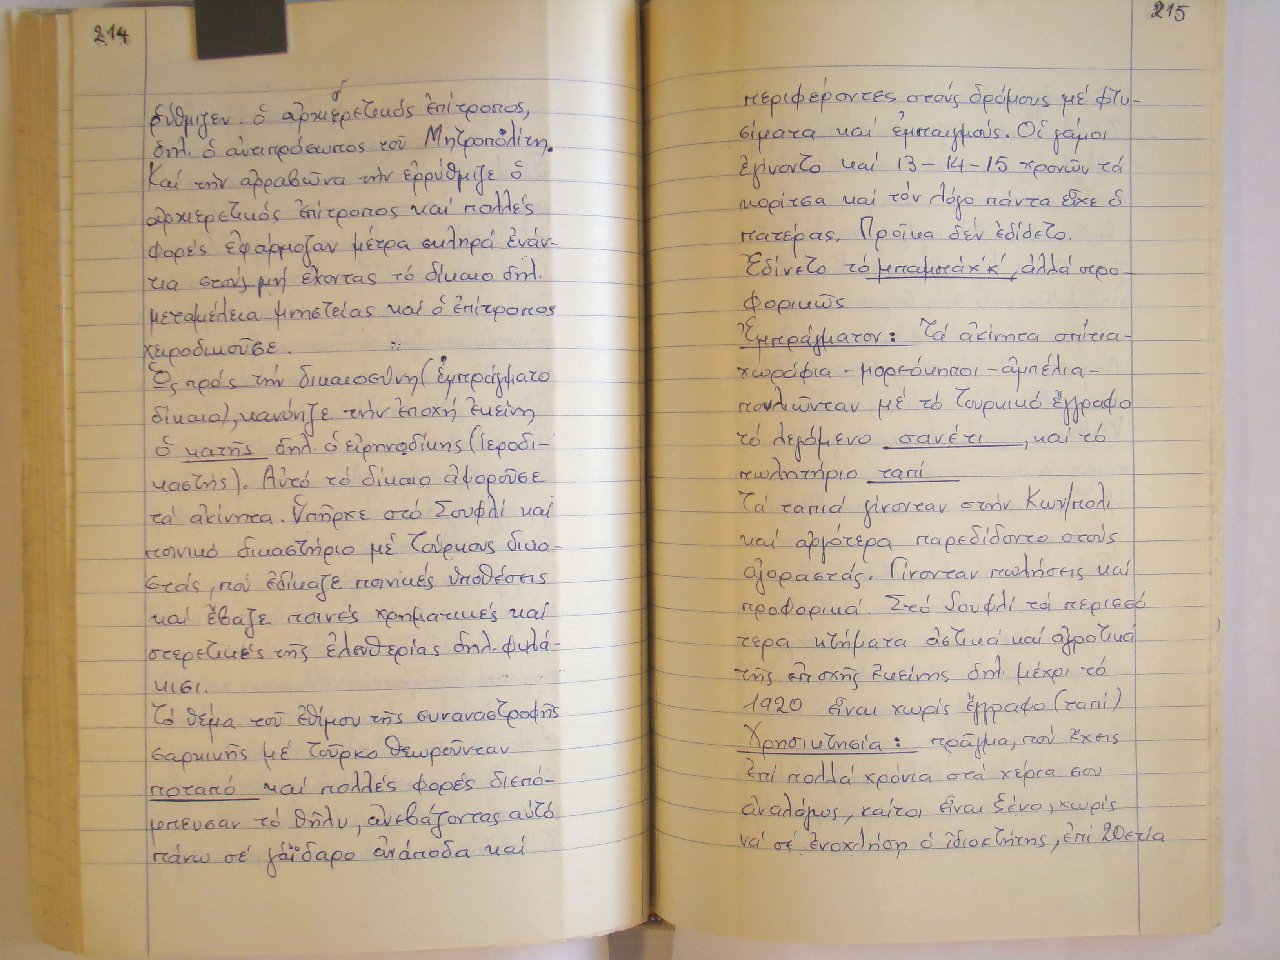 214
ρύθμιζεν. ὁ αρχιερετικός ἐπίτροπος,
δηλ. ὁ ἀντιπρόσωπος τοῦ Μητροπολίτη.
Καί τήν αρραβῶνα τήν ἐρρύθμιζε ὁ
αρχιερετικός ἐπίτροπος καί πολλές
φορές εφάρμοζαν μέτρα σκληρά ἐνάν-
τια στούς μή έχοντας τό δίκαιο δηλ.
μεταμέλεια μνηστείας καί ὁ ἐπίτροπος
χειροδικοῦσε.
Ὡς πρός τήν δικαιοσύνη (ἐμπράγματο
δίκαιο), κανόνιζε τήν ἐποχή ἐκείνη
ὁ κατής δηλ. ὁ εἰρηνοδίκης (ἱεροδι-
καστής). Αὐτό τό δίκαιο ἀφοροῦσε
τά ἀκίνητα. Ὑπῆρχε στό Σουφλί καί
ποινικό δικαστήριο μέ Τούρκους δικα-
στάς, πού ἐδίκαζε ποινικές ὑποθέσεις
καί ἔβαζε ποινές χρηματικές καί
στερετικές τῆς ἐλευθερίας δηλ. φυλά-
κισι.
Τό θέμα τοῦ ἐθίμου τῆς συναναστροφῆς
σαρκικῆς μέ Τοῦρκο θεωροῦνταν
ποταπό καί πολλές φορές διεπό-
μπευσαν τό θῆλυ, ἀνεβάζοντας αὐτό
πάνω σέ γάϊδαρο ἀνάποδα καί
215
περιφέροντες στούς δρόμους μέ φτυ-
σίματα καί ἐμπαιγμούς. Οἱ γάμοι
ἐγίνοντο καί 13-14-15 χρονῶν τά
κορίτσα καί τόν λόγο πάντα εἶχε ὁ
πατέρας. Προῖκα δέν ἐδίδετο.
Ἐδίνετο τό μπαμπάχ'κ', ἀλλά προ-
φορικῶς
Ἐμπράγματον: Τά ἀκίνητα σπίτια-
χωράφια-μορεόκηποι-ἀμπέλια-
πουλιῶνταν μέ τό Τουρκικό ἔγγραφο
τό λεγόμενο σανέτι, καί τό
πωλητήριο ταπί
Τά ταπιά γίνονταν στήν Κων/πολι
καί αργότερα παρεδίδοντο στούς
ἀγοραστάς. Γίνονταν πωλήσεις καί
προφορικά. Στό Σουφλί τά περισσό
τερα κτήματα ἀστικά καί αγροτικά
τῆς ἐποχῆς ἐκείνης δηλ. μέχρι τό
1920 εἶναι χωρίς ἔγγραφο (ταπί)
Χρησικτησία: πρᾶγμα, πού ἔχεις
ἐπί πολλά χρόνια στά χέρια σου
ἀναλόγως, καίτοι εἶναι ξένο, χωρίς
νά σέ ἐνοχλήση ὁ ἰδιοκτήτης, ἐπί 20ετία